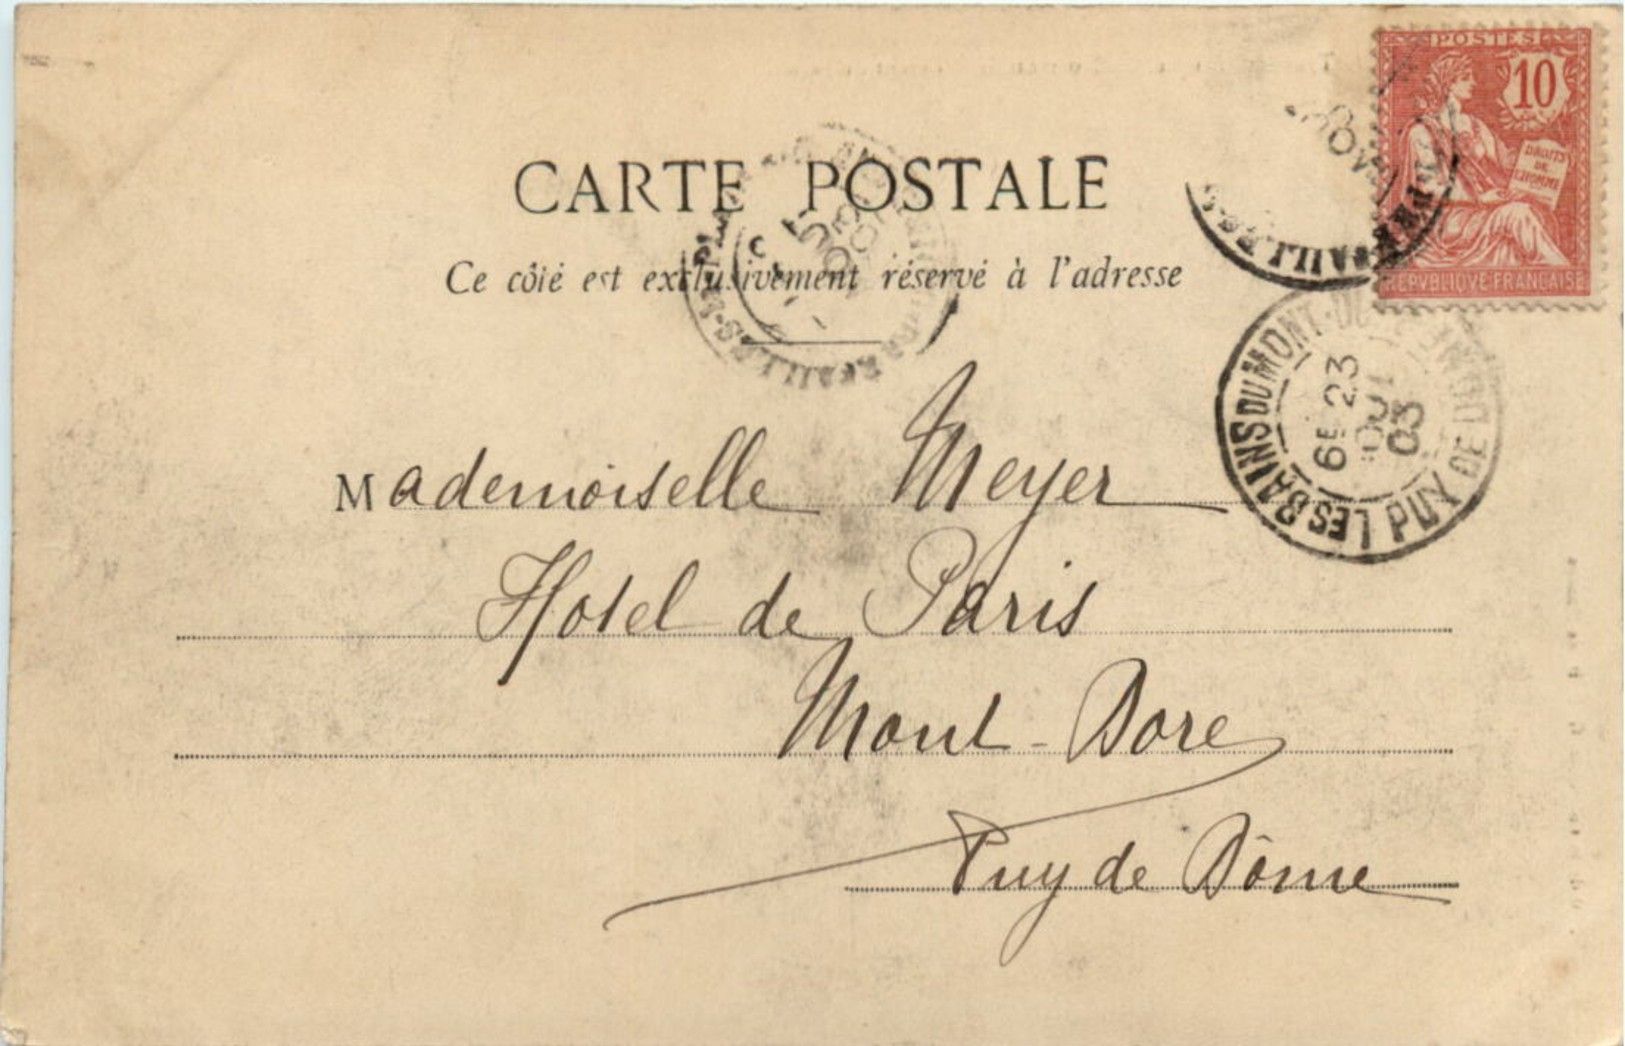 POSTES
10
DROITS
DE
L'HOMME
REPVBLIQVE FRANÇAISE
CARTE POSTALE
Ce côté est exclusivement réservé à l'adresse
LES BAINS DU MONT-DORE PUY DE DOME
6E 23
AOUT
03
Mademoiselle Meyer
Hotel de Paris
Mont-Dore
Puy de Dôme